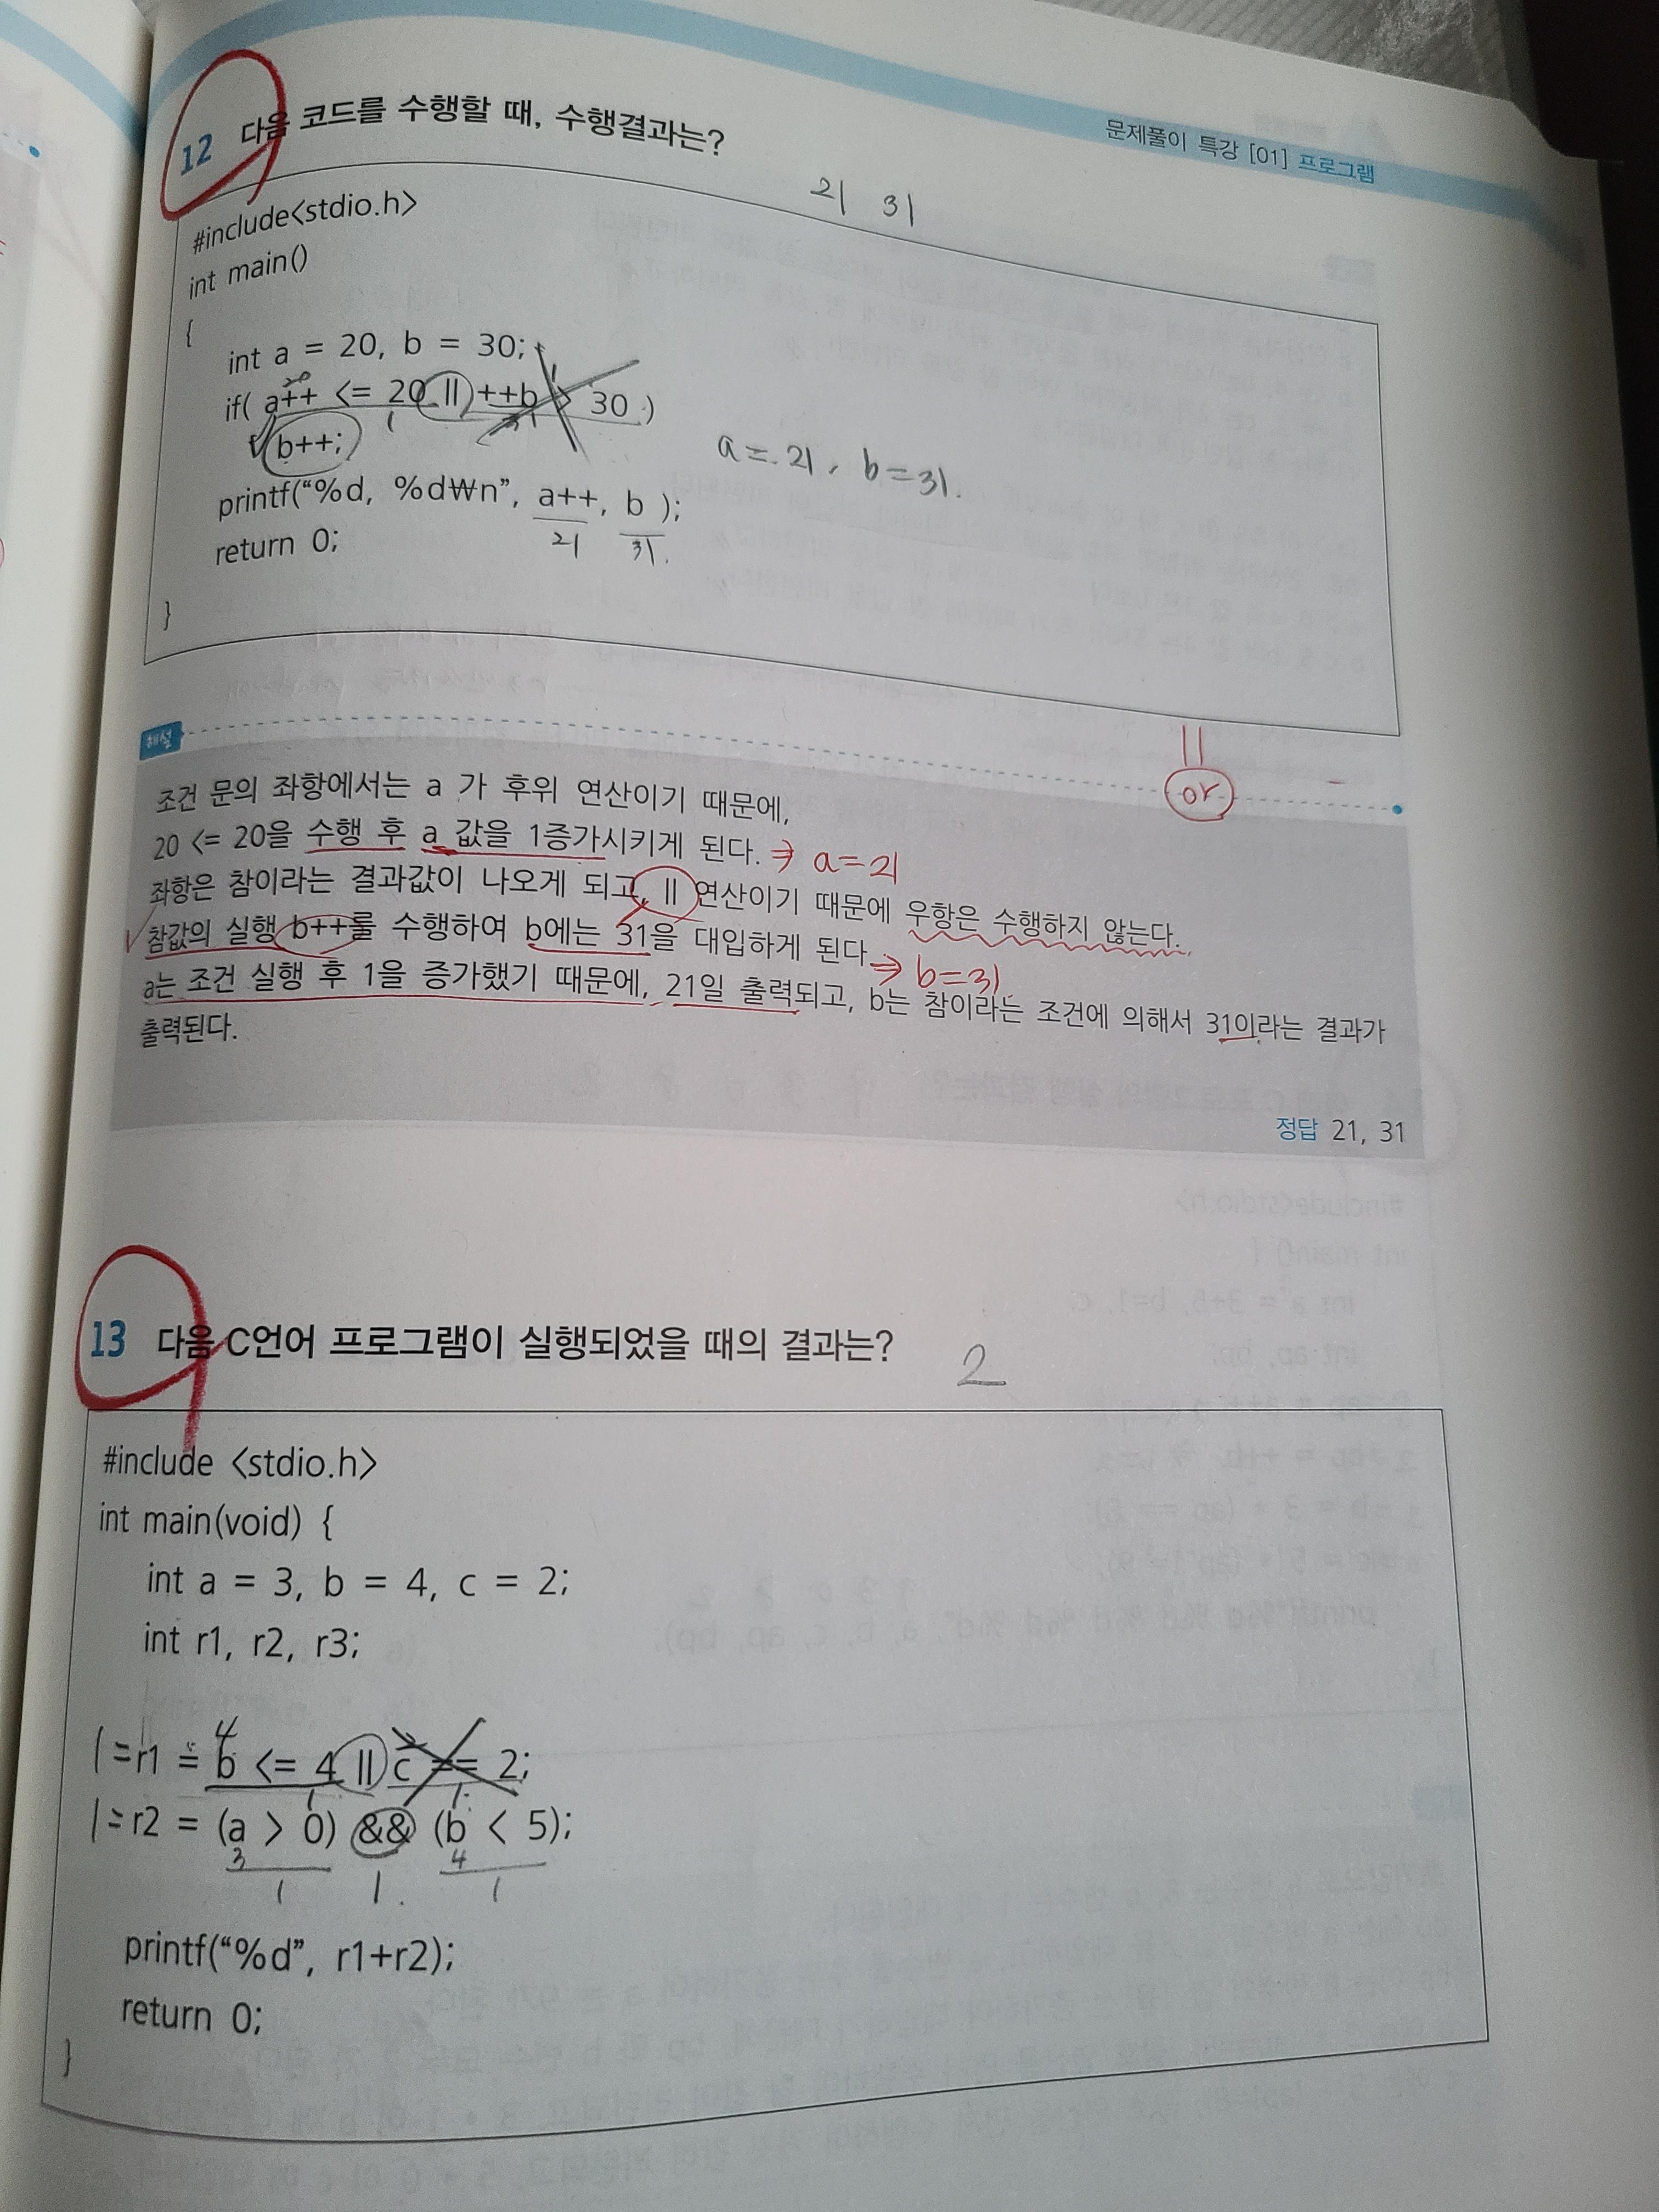 문제풀이 특강 [01] 프로그램
12 다음 코드를 수행할 때, 수행결과는?
21 31
#include<stdio.h>
int main()
{
int a = 20, b = 30;
20
if( a++ <= 20 || ++b > 30 )
1 31
b++;
a = 21, b = 31.
printf("%d, %d₩n", a++, b );
21 31.
return 0;
}
||
or
해설
조건 문의 좌항에서는 a 가 후위 연산이기 때문에,
20 <= 20을 수행 후 a 값을 1증가시키게 된다. ⇒ a=21
좌항은 참이라는 결과값이 나오게 되고, || 연산이기 때문에 우항은 수행하지 않는다.
참값의 실행 b++를 수행하여 b에는 31을 대입하게 된다. ⇒ b=31
a는 조건 실행 후 1을 증가했기 때문에, 21일 출력되고, b는 참이라는 조건에 의해서 31이라는 결과가
출력된다.
정답 21, 31
13 다음 C언어 프로그램이 실행되었을 때의 결과는? 2
#include <stdio.h>
int main(void) {
int a = 3, b = 4, c = 2;
int r1, r2, r3;
4 2
1=r1 = b <= 4 || c == 2;
1 1
1=r2 = (a > 0) && (b < 5);
3 4
1 1. 1
printf("%d", r1+r2);
return 0;
}